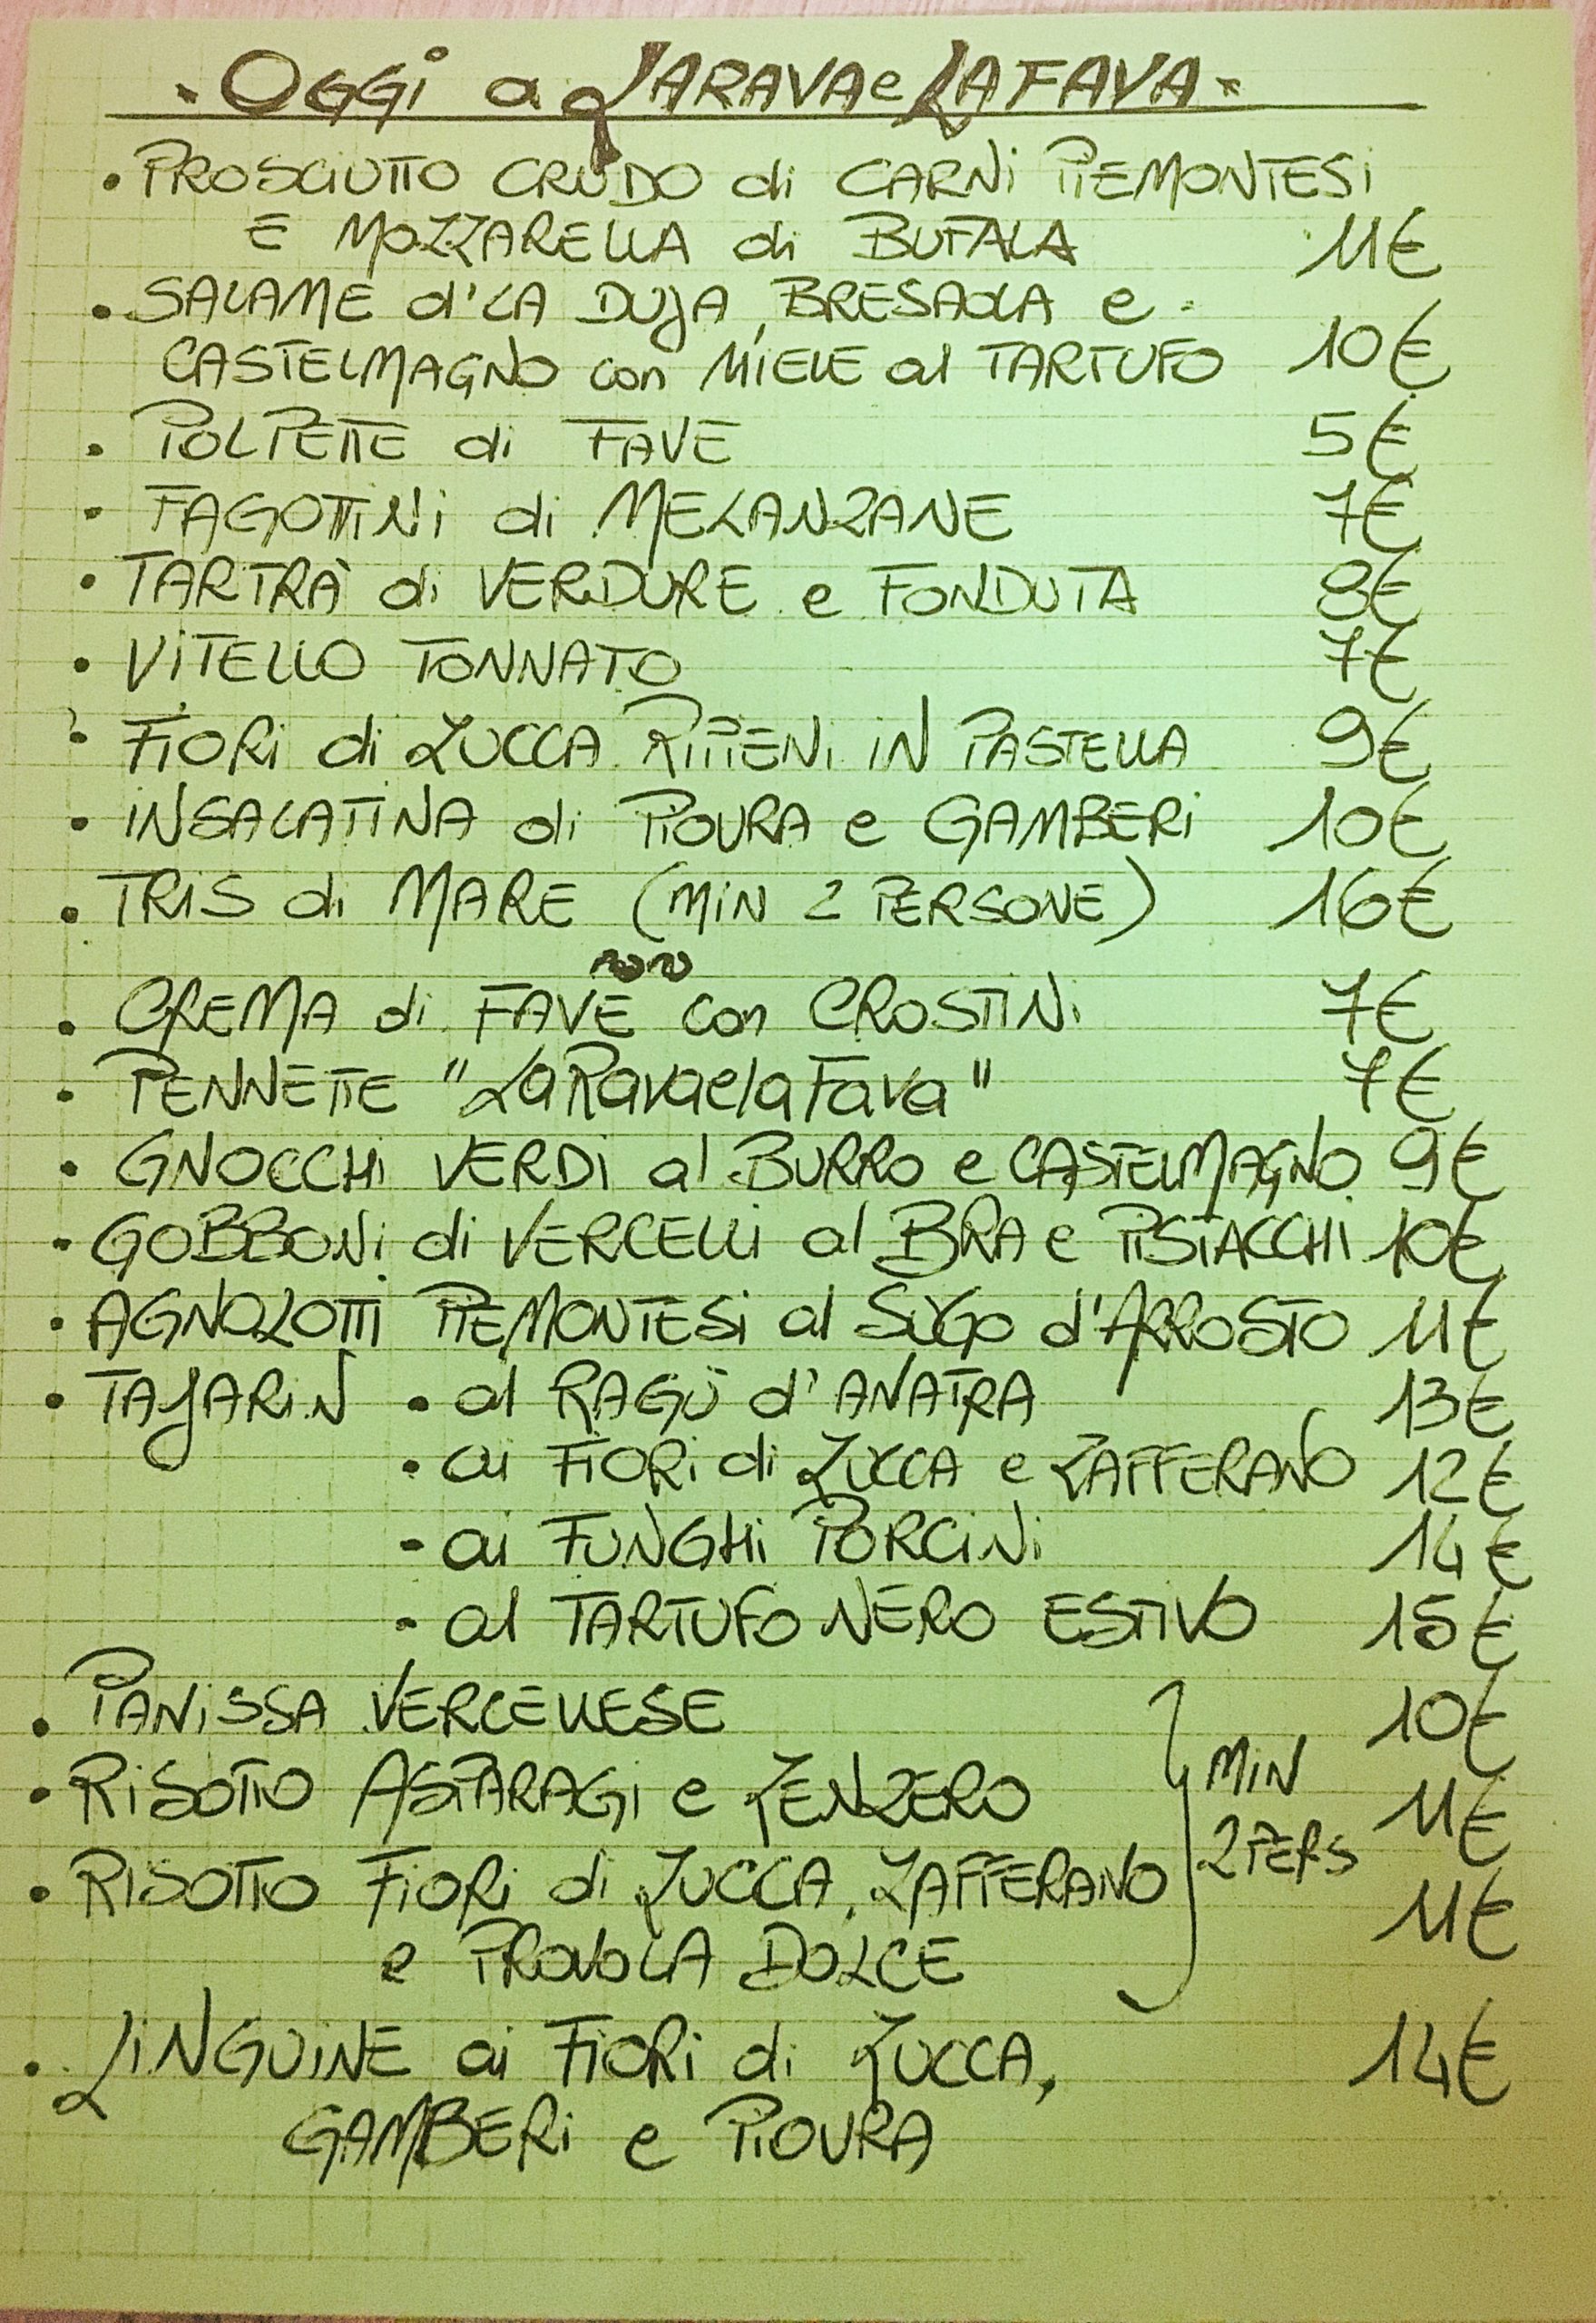 . Oggi a LARAVAeLAFAVA.
• PROSCIUTTO CRUDO di CARNI PIEMONTESI
E MOZZARELLA di BUFALA 11€
• SALAME d'LA DUJA, BRESAOLA e
CASTELMAGNO con MIELE al TARTUFO 10€
• POLPETTE di FAVE 5€
• FAGOTTINI di MELANZANE 7€
• TARTRÀ di VERDURE e FONDUTA 8€
• VITELLO TONNATO 7€
• FIORI di ZUCCA RIPIENI IN PASTELLA 9€
• INSALATINA di PIOVRA e GAMBERI 10€
• TRIS di MARE (MIN 2 PERSONE) 16€
• CREMA di FAVE con CROSTINI 7€
• PENNETTE "LaRavaelaFava" 7€
• GNOCCHI VERDI al BURRO e CASTELMAGNO 9€
• GOBBONI di VERCELLI al BRA e PISTACCHI 10€
• AGNOLOTTI PIEMONTESI al SUGO d'ARROSTO 11€
• TAJARIN • al RAGÙ d'ANATRA 13€
• ai FIORI di ZUCCA e ZAFFERANO 12€
- ai FUNGHI PORCINI 14€
- al TARTUFO NERO ESTIVO 15€
• PANISSA VERCELLESE 10€
• RISOTTO ASPARAGI e ZENZERO MIN 11€
2 PERS
• RISOTTO FIORI di ZUCCA, ZAFFERANO 11€
e PROVOLA DOLCE
• LINGUINE ai FIORI di ZUCCA, 14€
GAMBERI e PIOVRA